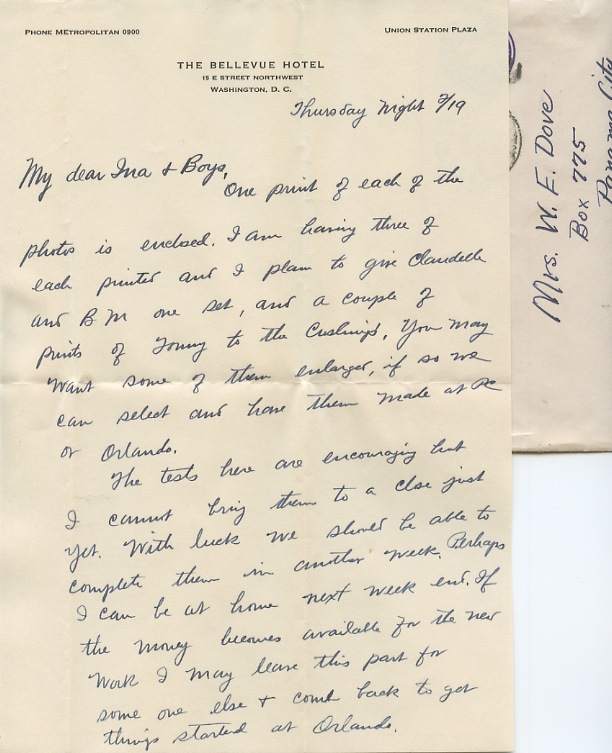 PHONE METROPOLITAN 0900
UNION STATION PLAZA
THE BELLEVUE HOTEL
15 E STREET NORTHWEST
WASHINGTON, D. C.
Thursday night 3/19
My dear Ina & Boys,
One print of each of the
photos is enclosed. I am having three of
each printed and I plan to give Claudelle
and B M one set, and a couple of
prints of Tommy to the Cushings. You may
want some of them enlarged, if so we
can select and have them made at PC
or Orlando.
The tests here are encouraging but
I cannot bring them to a close just
yet. With luck we should be able to
complete them in another week. Perhaps
I can be at home next week end. If
the money becomes available for the new
work I may leave this part for
some one else & come back to get
things started at Orlando.
Mrs. W. E. Dove
Box 775
Panama City